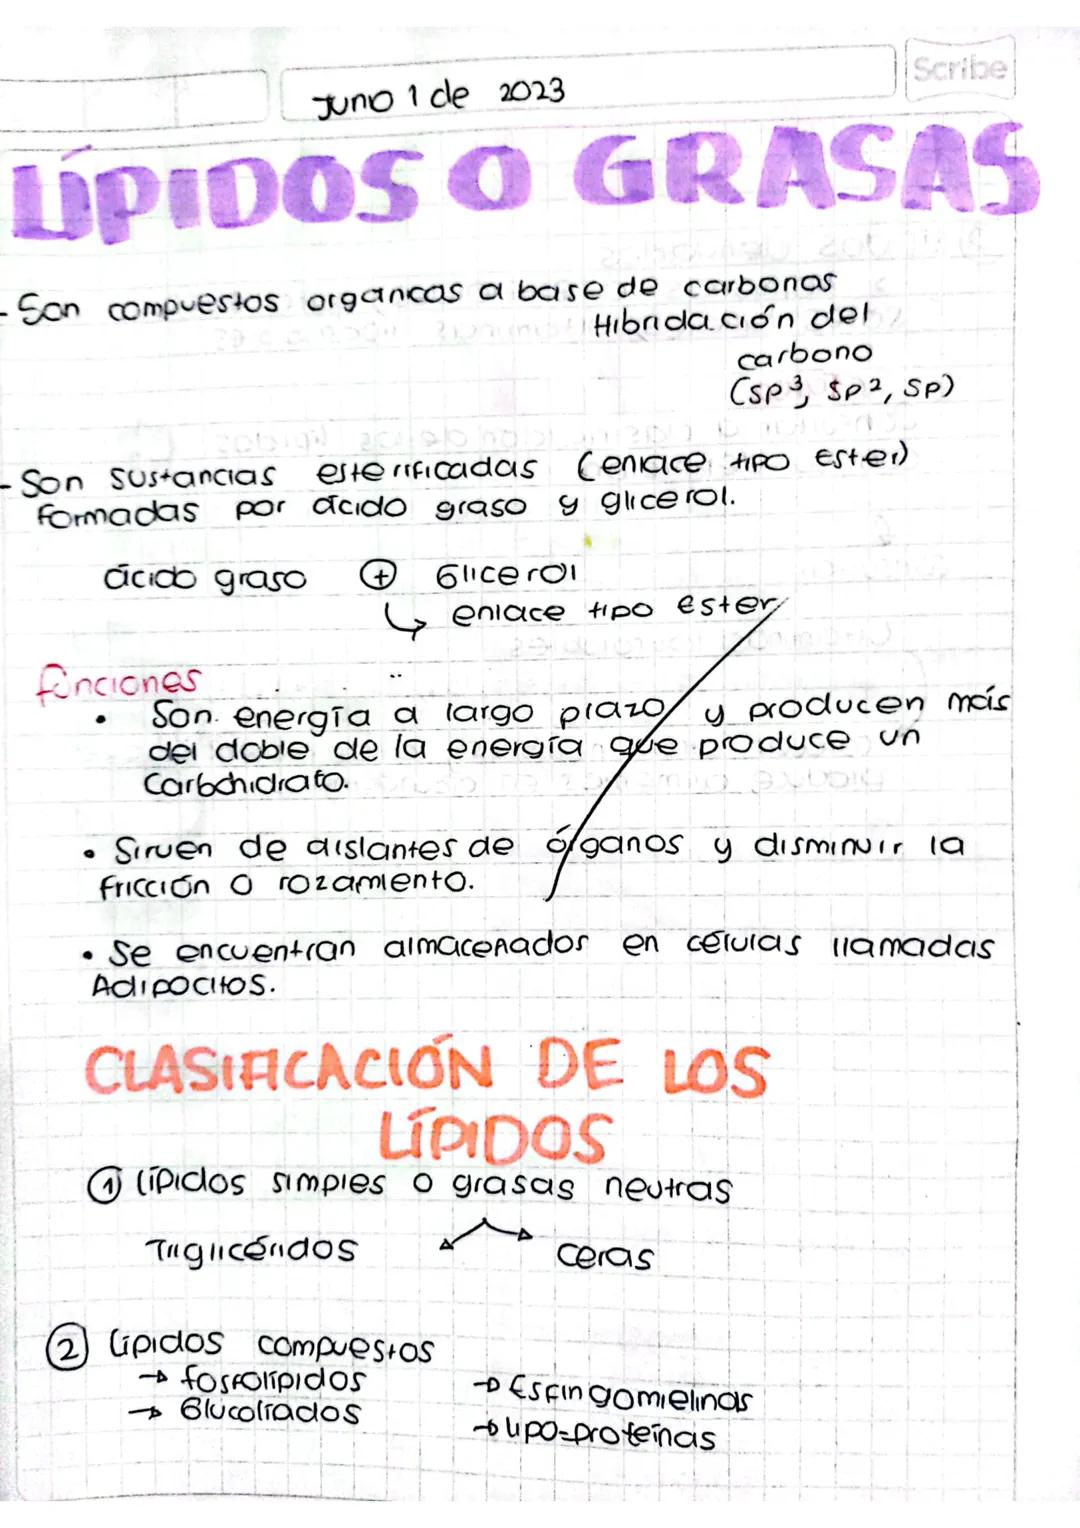 Scribe
Junio 1 de 2023
LÍPIDOS O GRASAS
- Son compuestos organicos a base de carbonos
Hibridación del
carbono
(SP³, SP², SP)
- Son sustancias esterificadas (enlace tipo Ester)
formadas por ácido graso y glicerol.
ácido graso + Glicerol
↳ enlace tipo Ester
funciones
• Son energía a largo plazo y producen más
del doble de la energía que produce un
Carbohidrato.
• Sirven de aislantes de órganos y disminuir la
fricción o rozamiento.
• Se encuentran almacenados en células llamadas
Adipocitos.
CLASIFICACIÓN DE LOS
LÍPIDOS
① lípidos simples o grasas neutras
Triglicéridos ceras
② Lípidos compuestos
→ fosfolípidos → Esfingomielinas
→ Glucolíados → Lipo-proteínas